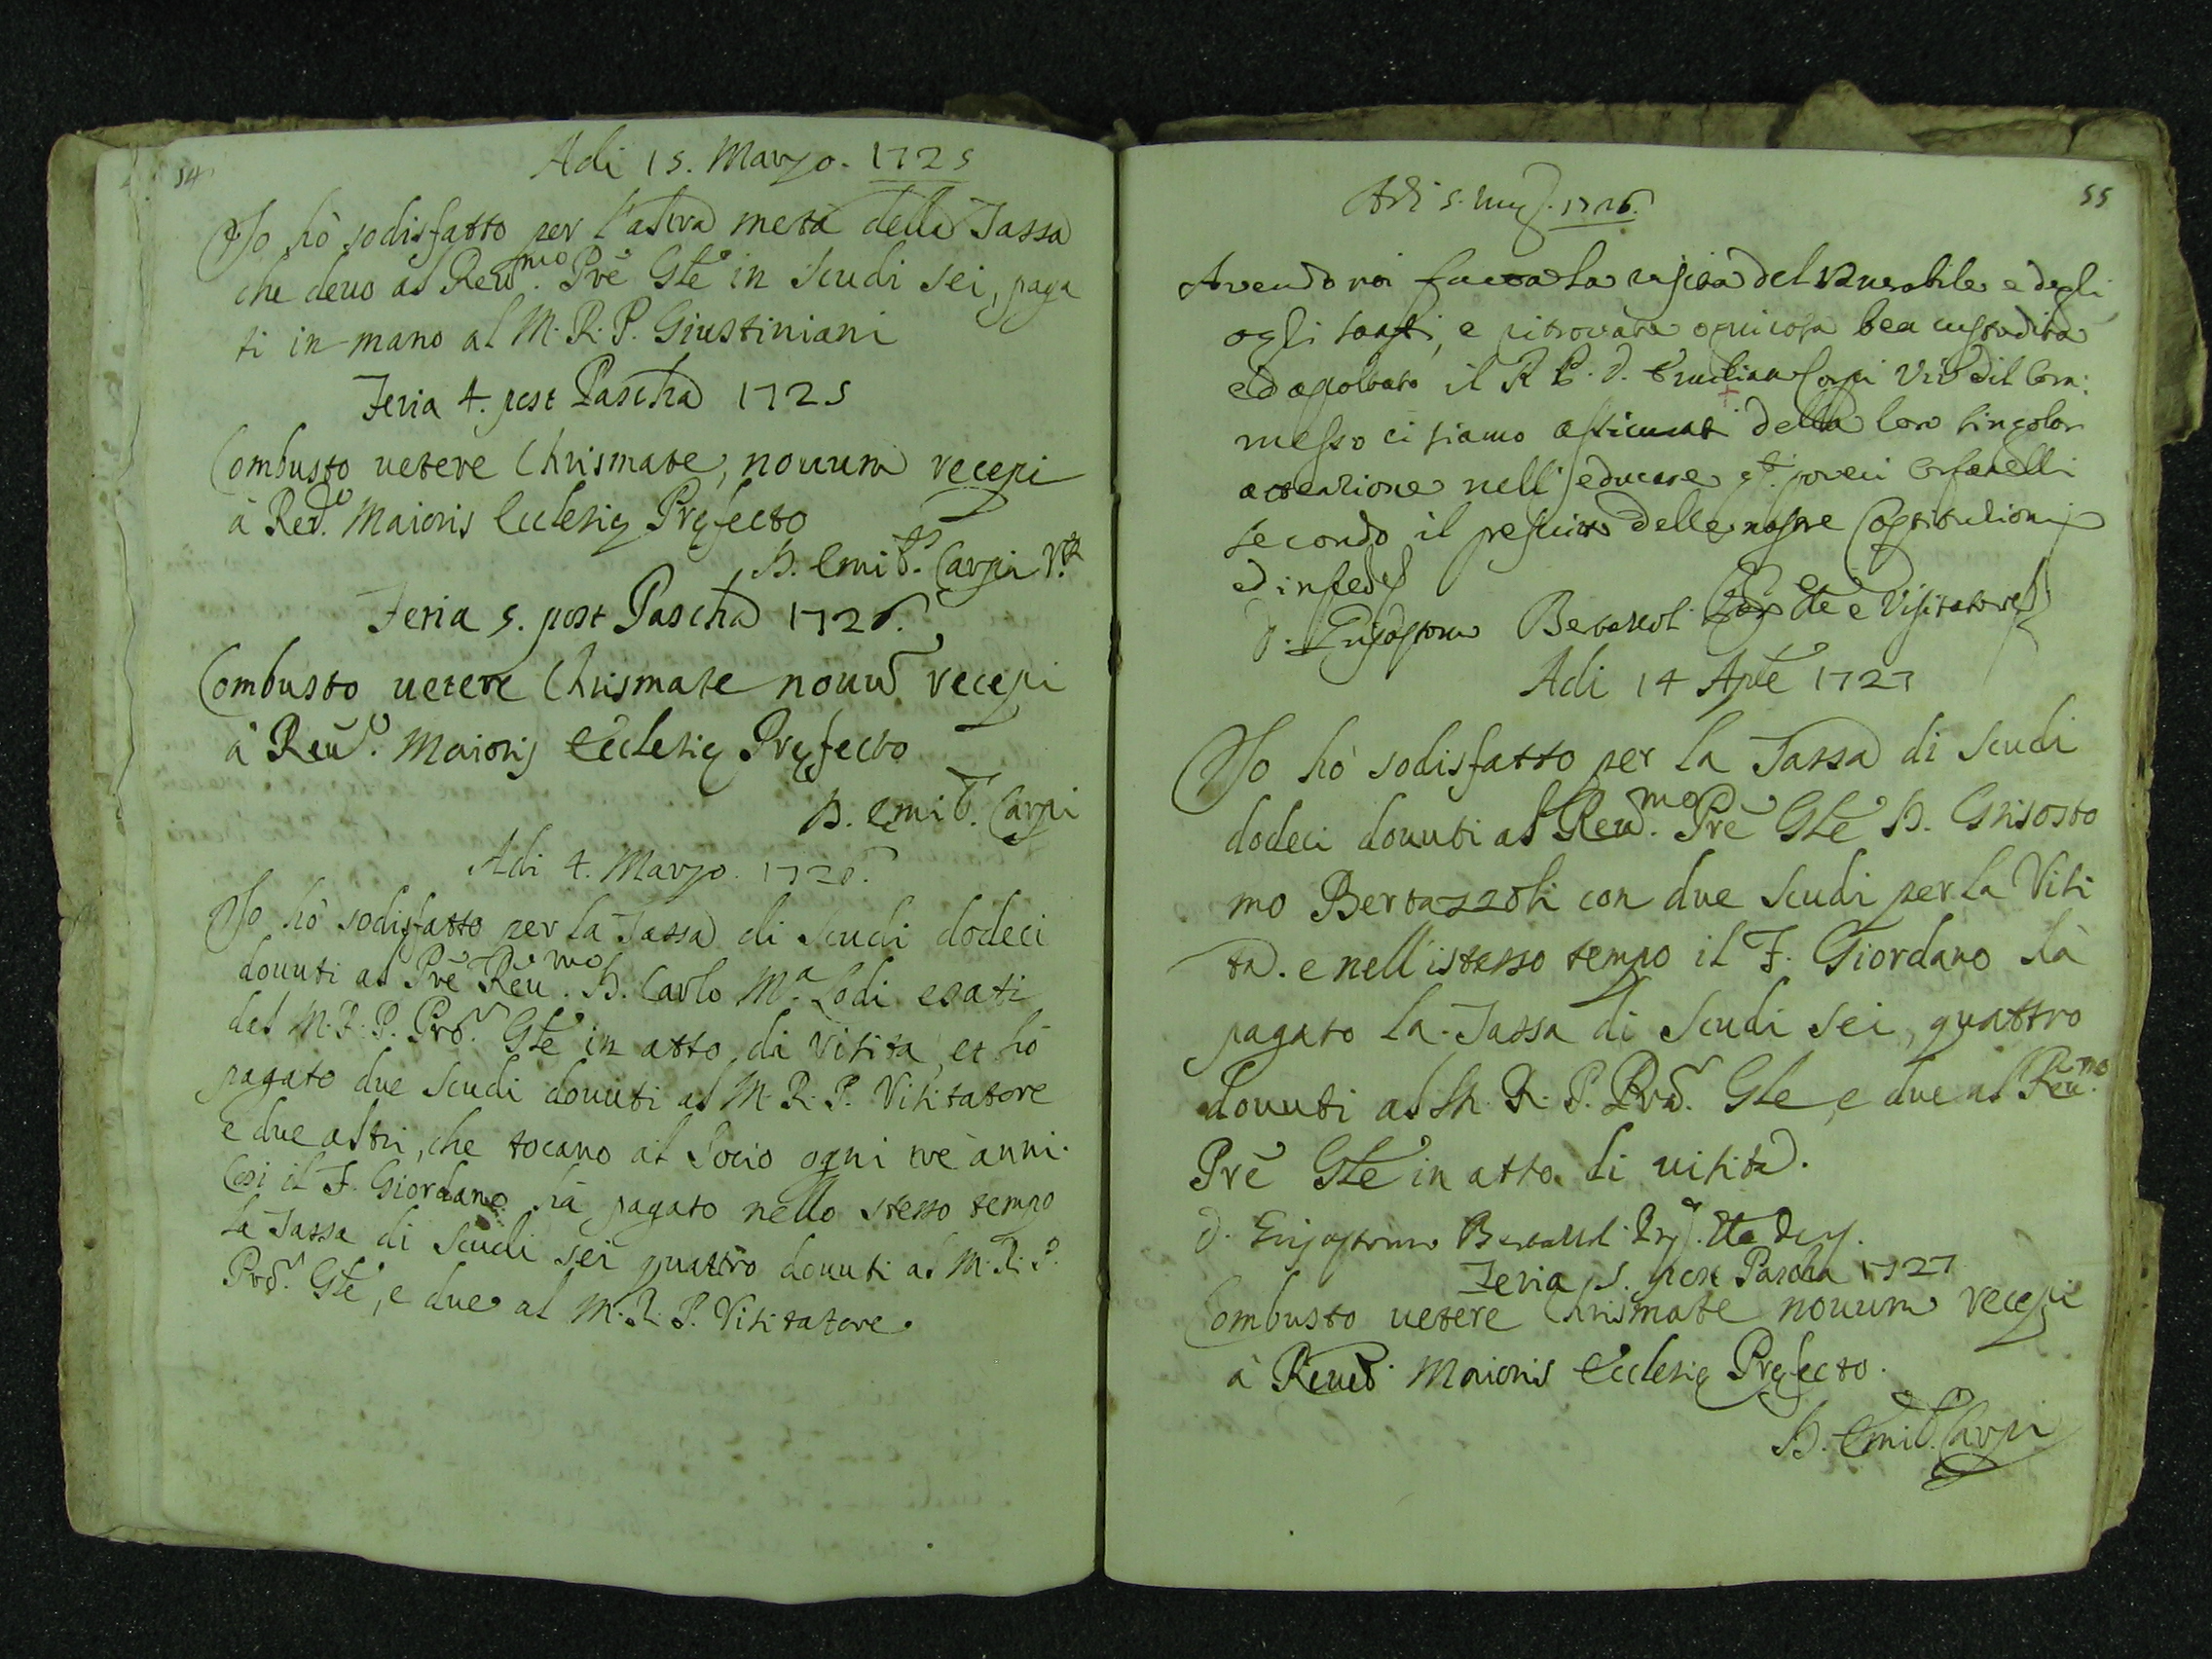 54
Adi 15. Marzo. 1725
Io hò sodisfatto per l'altra metà della Tassa
che devo al Reũ.mo Prẽ Gĩe in Scudi sei, paga
ti in mano al M. R. P. Giustiniani
Feria 4. post Pascha 1725
Combusto uetere Chrismate, nouum recepi
à Red.o Maioris Ecclesię Pręfecto
D. Emil. Carpi V.R
Feria 5. post Pascha 1726.
Combusto uetere Chrismate nouũ recepi
à Reud.o Maioris Ecclesię Pręfecto
D. Emil. Carpi
Adi 4. Marzo. 1726.
Io hò sodisfatto per la Tassa di Scudi dodeci
douuti al Prẽ Reũ.mo D. Carlo M.a Lodi esati
dal M. R. P. Prõ.r Gĩe in atto di Visita, et hò
pagato due Scudi douuti al M. R. P. Visitatore
e due altri, che tocano al Socio ogni trè anni.
Così il F. Giordano hà pagato nello stesso tempo
la Tassa di Scudi sei quattro douuti al M. R. P.
Prõ.r Gĩe, e due al M. R. P. Visitatore
55
Adi 5. 1726.
Avendo noi fatta la visita del Venerabile e degli
ogli santi, e ritrovata ogni cosa ben custodita
ed ascoltato il R P. D. Emiliano Carpi
messo ci siamo assicurati della loro singolar
attenzione nell'educare q.ti poveri Orfanelli
secondo il prescritto delle nostre Costitutioni
ed in fede
D. Grisostomo Bertazzoli Gĩe e Visitatore
Adi 14 Aplẽ 1727
Io hò sodisfatto per la Tassa di Scudi
dodeci douuti al Reũ.mo Prẽ Gĩe D. Grisosto
mo Bertazzoli con due Scudi per la Visi
ta. e nell'istesso tempo il F. Giordano hà
pagato la Tassa di Scudi sei, quattro
douuti al M. R. P. Prõ.r Gĩe, e due al Reũ.mo
Prẽ Gĩe in atto di uisita.
D. Grisostomo Bertazzoli
Feria 5. post Pascha 1727
Combusto uetere Chrismate nouum recepi
à Reued. Maioris Ecclesię Pręfecto.
D. Emil. Carpi